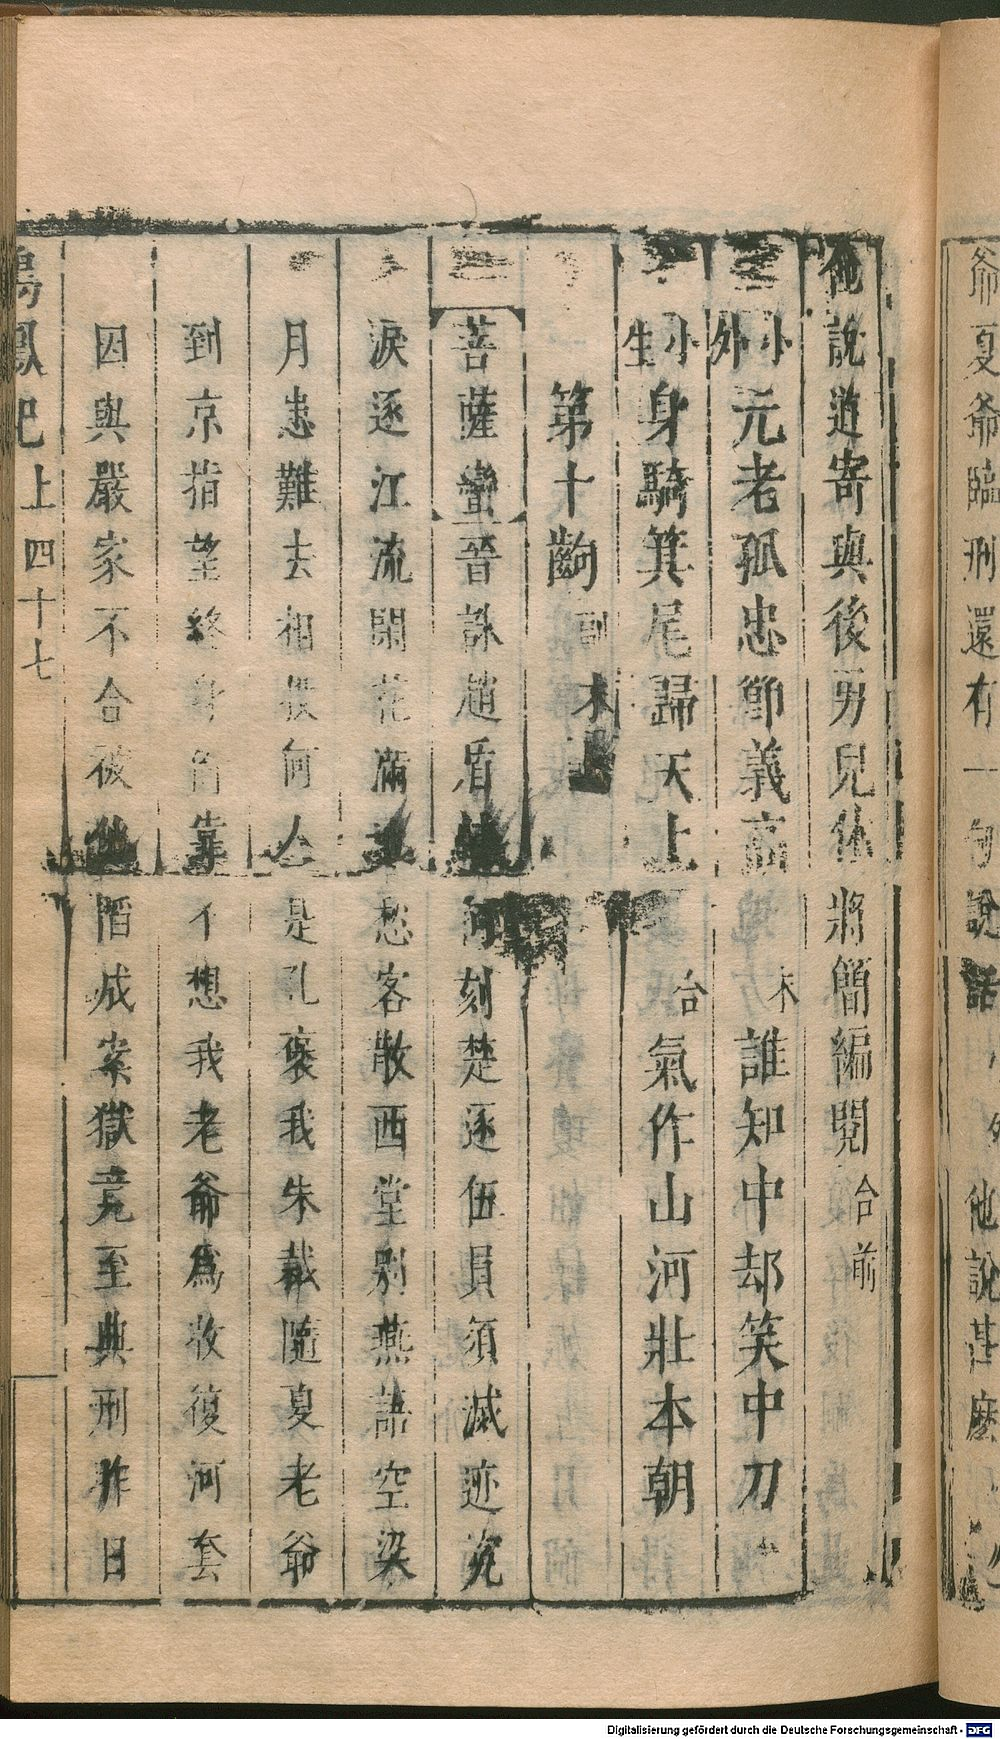 爺夏爺臨刑還有一句說話 外他說甚麽
他說道寄與後男兒休將簡編閱 合前
小外元老孤忠節義高 末誰知中却笑中刀
小生身騎箕尾歸天上 合氣作山河壯本朝
第十齣 副末上
菩薩蠻 晉誅趙盾 何刻楚逐伍員須滅迹
淚逐江流閑花滿 愁客散西堂別燕語空梁
月患難去相投何人是孔褒我朱裁隨夏老爺
到京指望終身 靠不想我老爺爲收復河套
因與嚴家不合被他陷成案獄竟至典刑昨日
鳴鳳記上四十七
Digitalisierung gefördert durch die Deutsche Forschungsgemeinschaft - DFG